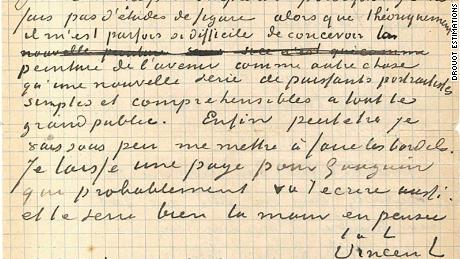 fais pas d'études de figure alors que théoriquement
il m'est parfois si difficile de concevoir la
nouvelle peinture
peinture de l'avenir comme autre chose
qu'une nouvelle serie de puissants portraitistes
simples et comprehensibles a tout le
grand public. Enfin peutetre je
vais sous peu me mettre à faire les bordels.
Je laisse une page pour Gauguin
qui probablement va t'ecrire aussi
et te serre bien la main en pensee
t a t
Vincent
DROUOT ESTIMATIONS